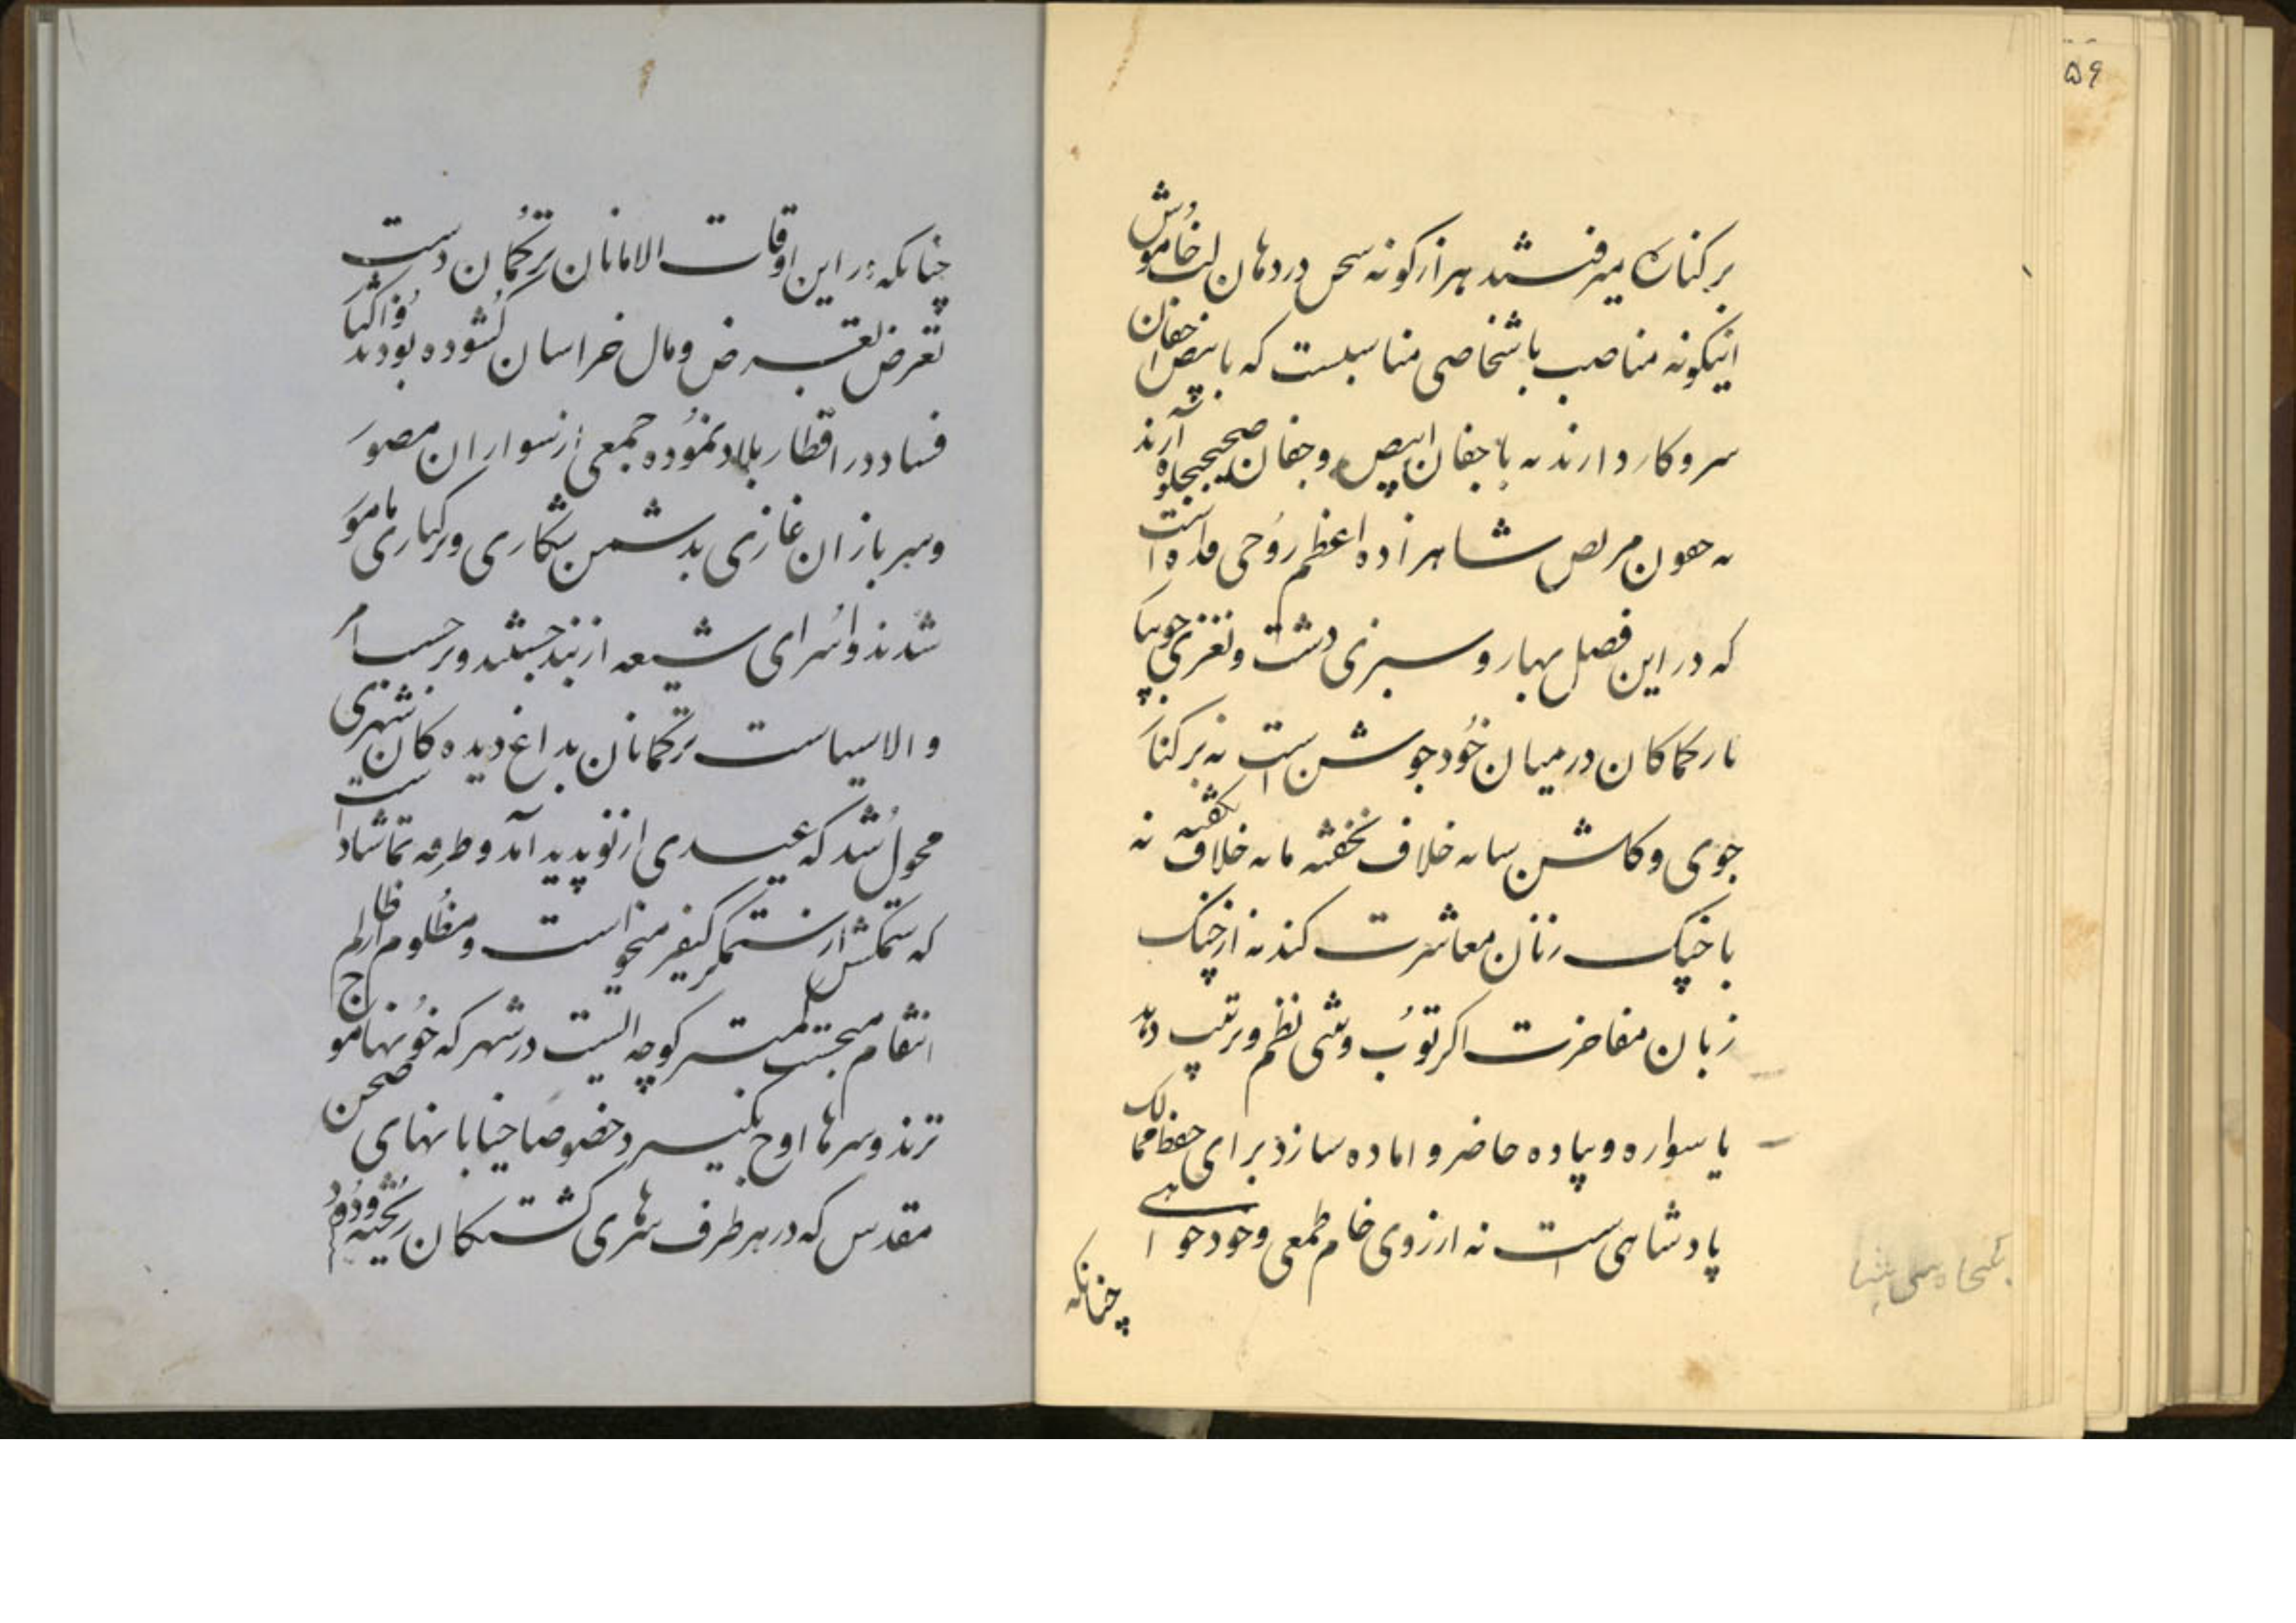 ۵۶
بر کناره میرفتند هزار گونه سخن در دهان لب خاموش
اینگونه مناصب باشخاصی مناسبست که با بیض اجفان
سر و کار دارند نه با جفان ابیض و جفان صحیح آرند
نه مریض شاهزاده اعظم روحی فداه است
که در این فصل بهار و سبزی دشت و نغزی جویبا
کان در میان خود جوشن است نه بر کنار
جوی و کاشن خلاف نخفته خلاف نه
با چنک زنان معاشرت کند نه از چنک
زبان مفاخرت اکر توب وشی نظم و ترتیب دهد
یا سواره و پیاده حاضر و اماده سازد برای حفظ ممالک
پادشاهی است نه ارزوی خام طمعی و خود خواهی
چنانکه
چنانکه در این اوقات الامانان ترکمان دست
تعرض بعرض و مال خراسان کشوده بودند
فساد در اقطار بلاد نموده جمعی از سواران منصور
و سربازان غازی بدشمن شکاری و رکاری مامو
شدند و اسرای شیعه از بند جستند و بر حسب امر
والا سیاست ترکمانان بداغ دیده کان شهری
محول شد که عیدی از نو پدید آمد و طرفه تماشا
که ستمکش از ستمکر کیفر میخواست و مظلوم از ظالم
انتقام میجست کمتر کوچه ایست در شهر که خونها موج
نزند و سرها اوج نکیرد خصوصا خیابانهای صحن
مقدس که در هر طرف سرهای کشتکان ریخته